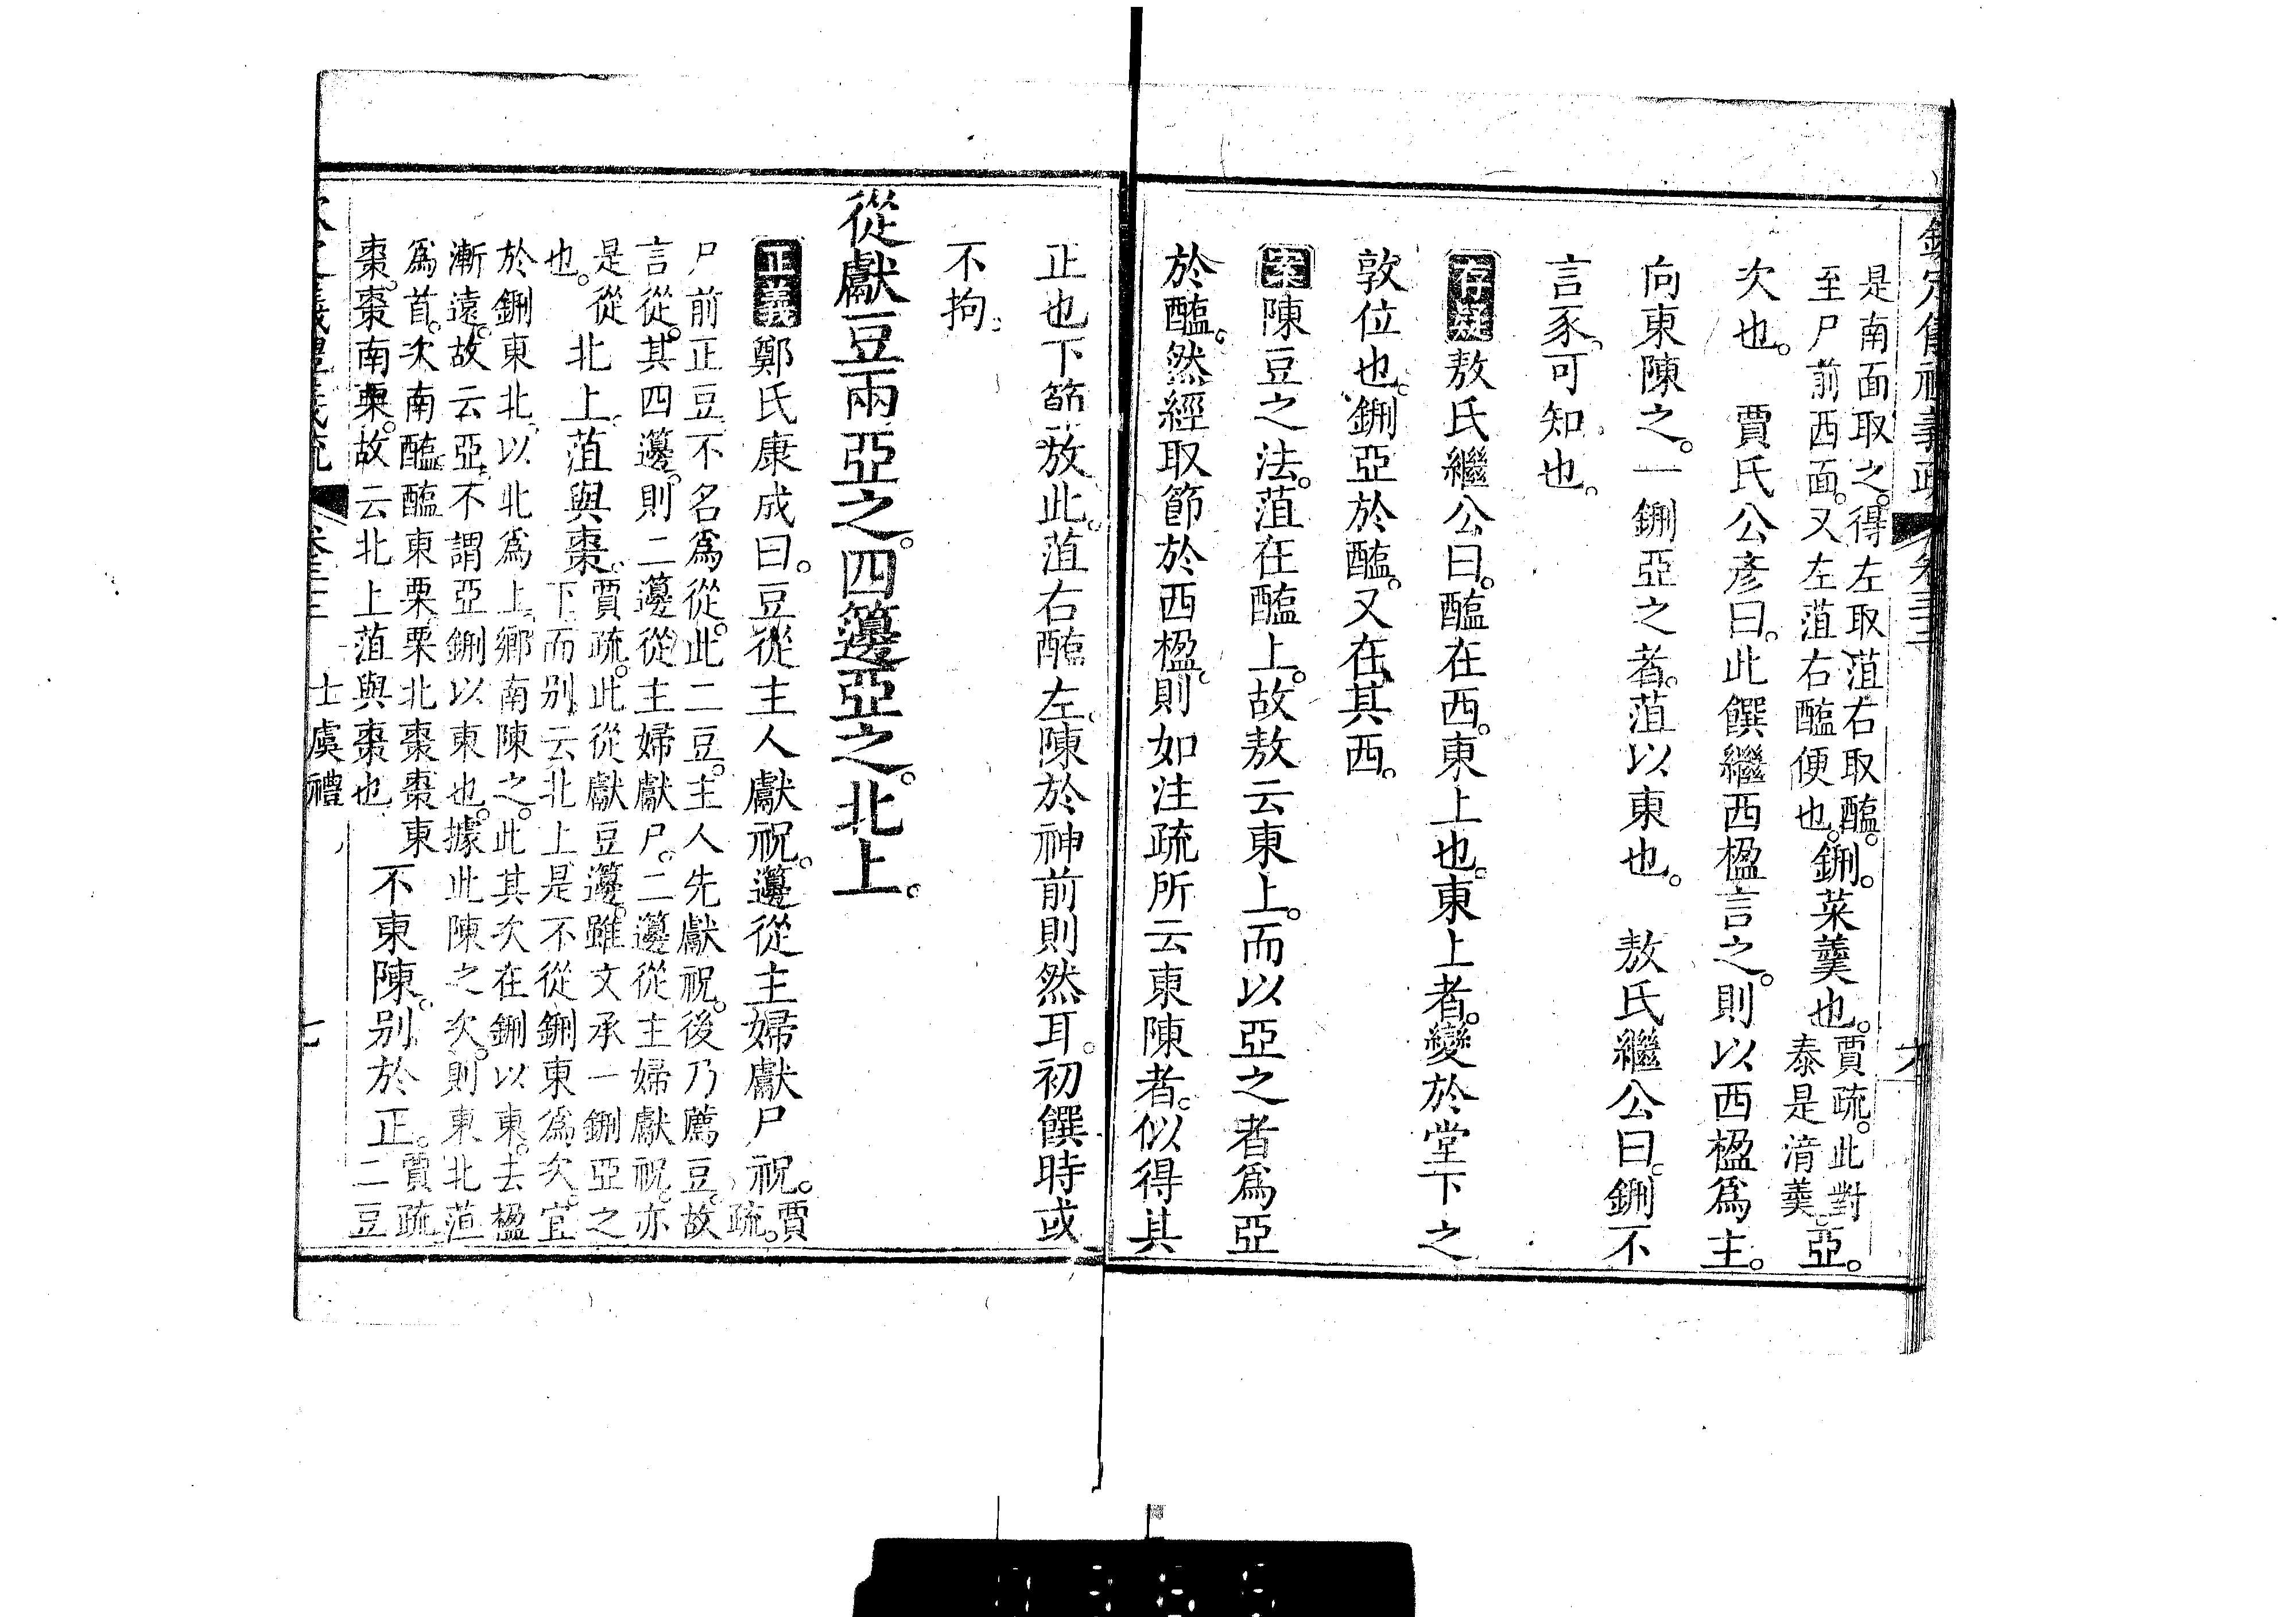 是南面取之。得左取菹右取醢。
至尸前西面。又左菹右醢便也。
鉶。菜羹也。
賈疏。此對
泰是湆羹。
亞。
次也。　賈氏公彥曰。此饌繼西楹言之。則以西楹爲主。
向東陳之。一鉶亞之者。菹以東也。　敖氏繼公曰。鉶不
言豕。可知也。
敖氏繼公曰。醢在西。東上也。東上者。變於堂下之
敦位也。鉶亞於醢。又在其西。
案陳豆之法。菹在醢上。故敖云東上。而以亞之者爲亞
於醢。然經取節於西楹。則如注疏所云東陳者。似得其
正也下節放此。菹右醢左。陳於神前則然耳。初饌時或
不拘。
從獻豆兩亞之。四籩亞之。北上。
正義鄭氏康成曰。豆從主人獻祝。籩從主婦獻尸祝。
賈
疏。
尸前正豆。不名爲從。此二豆。主人先獻祝。後乃薦豆。故
言從。其四籩。則二籩從主婦獻尸。二籩從主婦獻祝。亦
是從
也。
北上。菹與棗。
賈疏。此從獻豆籩。雖文承一鉶亞之
下。而別云北上。是不從鉶東爲次。宜
於鉶東北。以北爲上。鄉南陳之。此其次在鉶以東。去楹
漸遠。故云亞。不謂亞鉶以東也。據此陳之次。則東北菹
爲首。次南醢。醢東栗。栗北棗。棗東
棗。棗南栗。故云北上菹與棗也。
不東陳。別於正。
賈疏
二豆
士虞禮
七